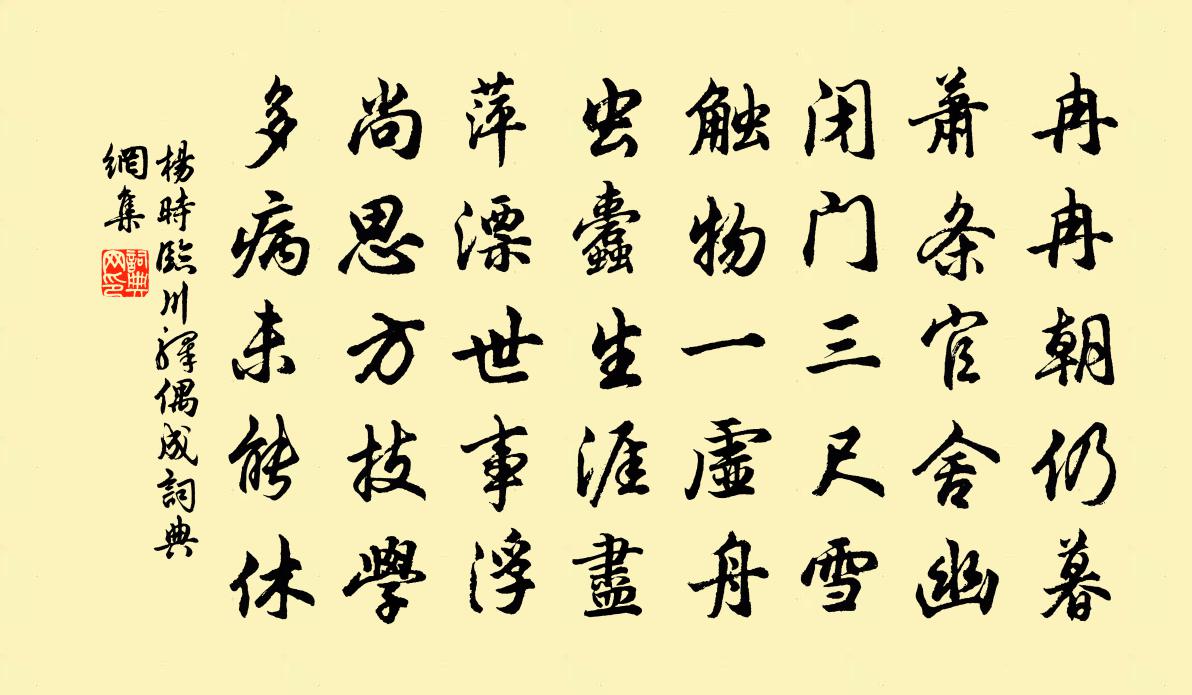 冉冉朝仍暮
萧条官舍幽
闭门三尺雪
触物一虚舟
虫蠹生涯盡
萍漂世事浮
尚思方技學
多病未能休
楊時臨川驛偶成詞典
網集
詞典网印